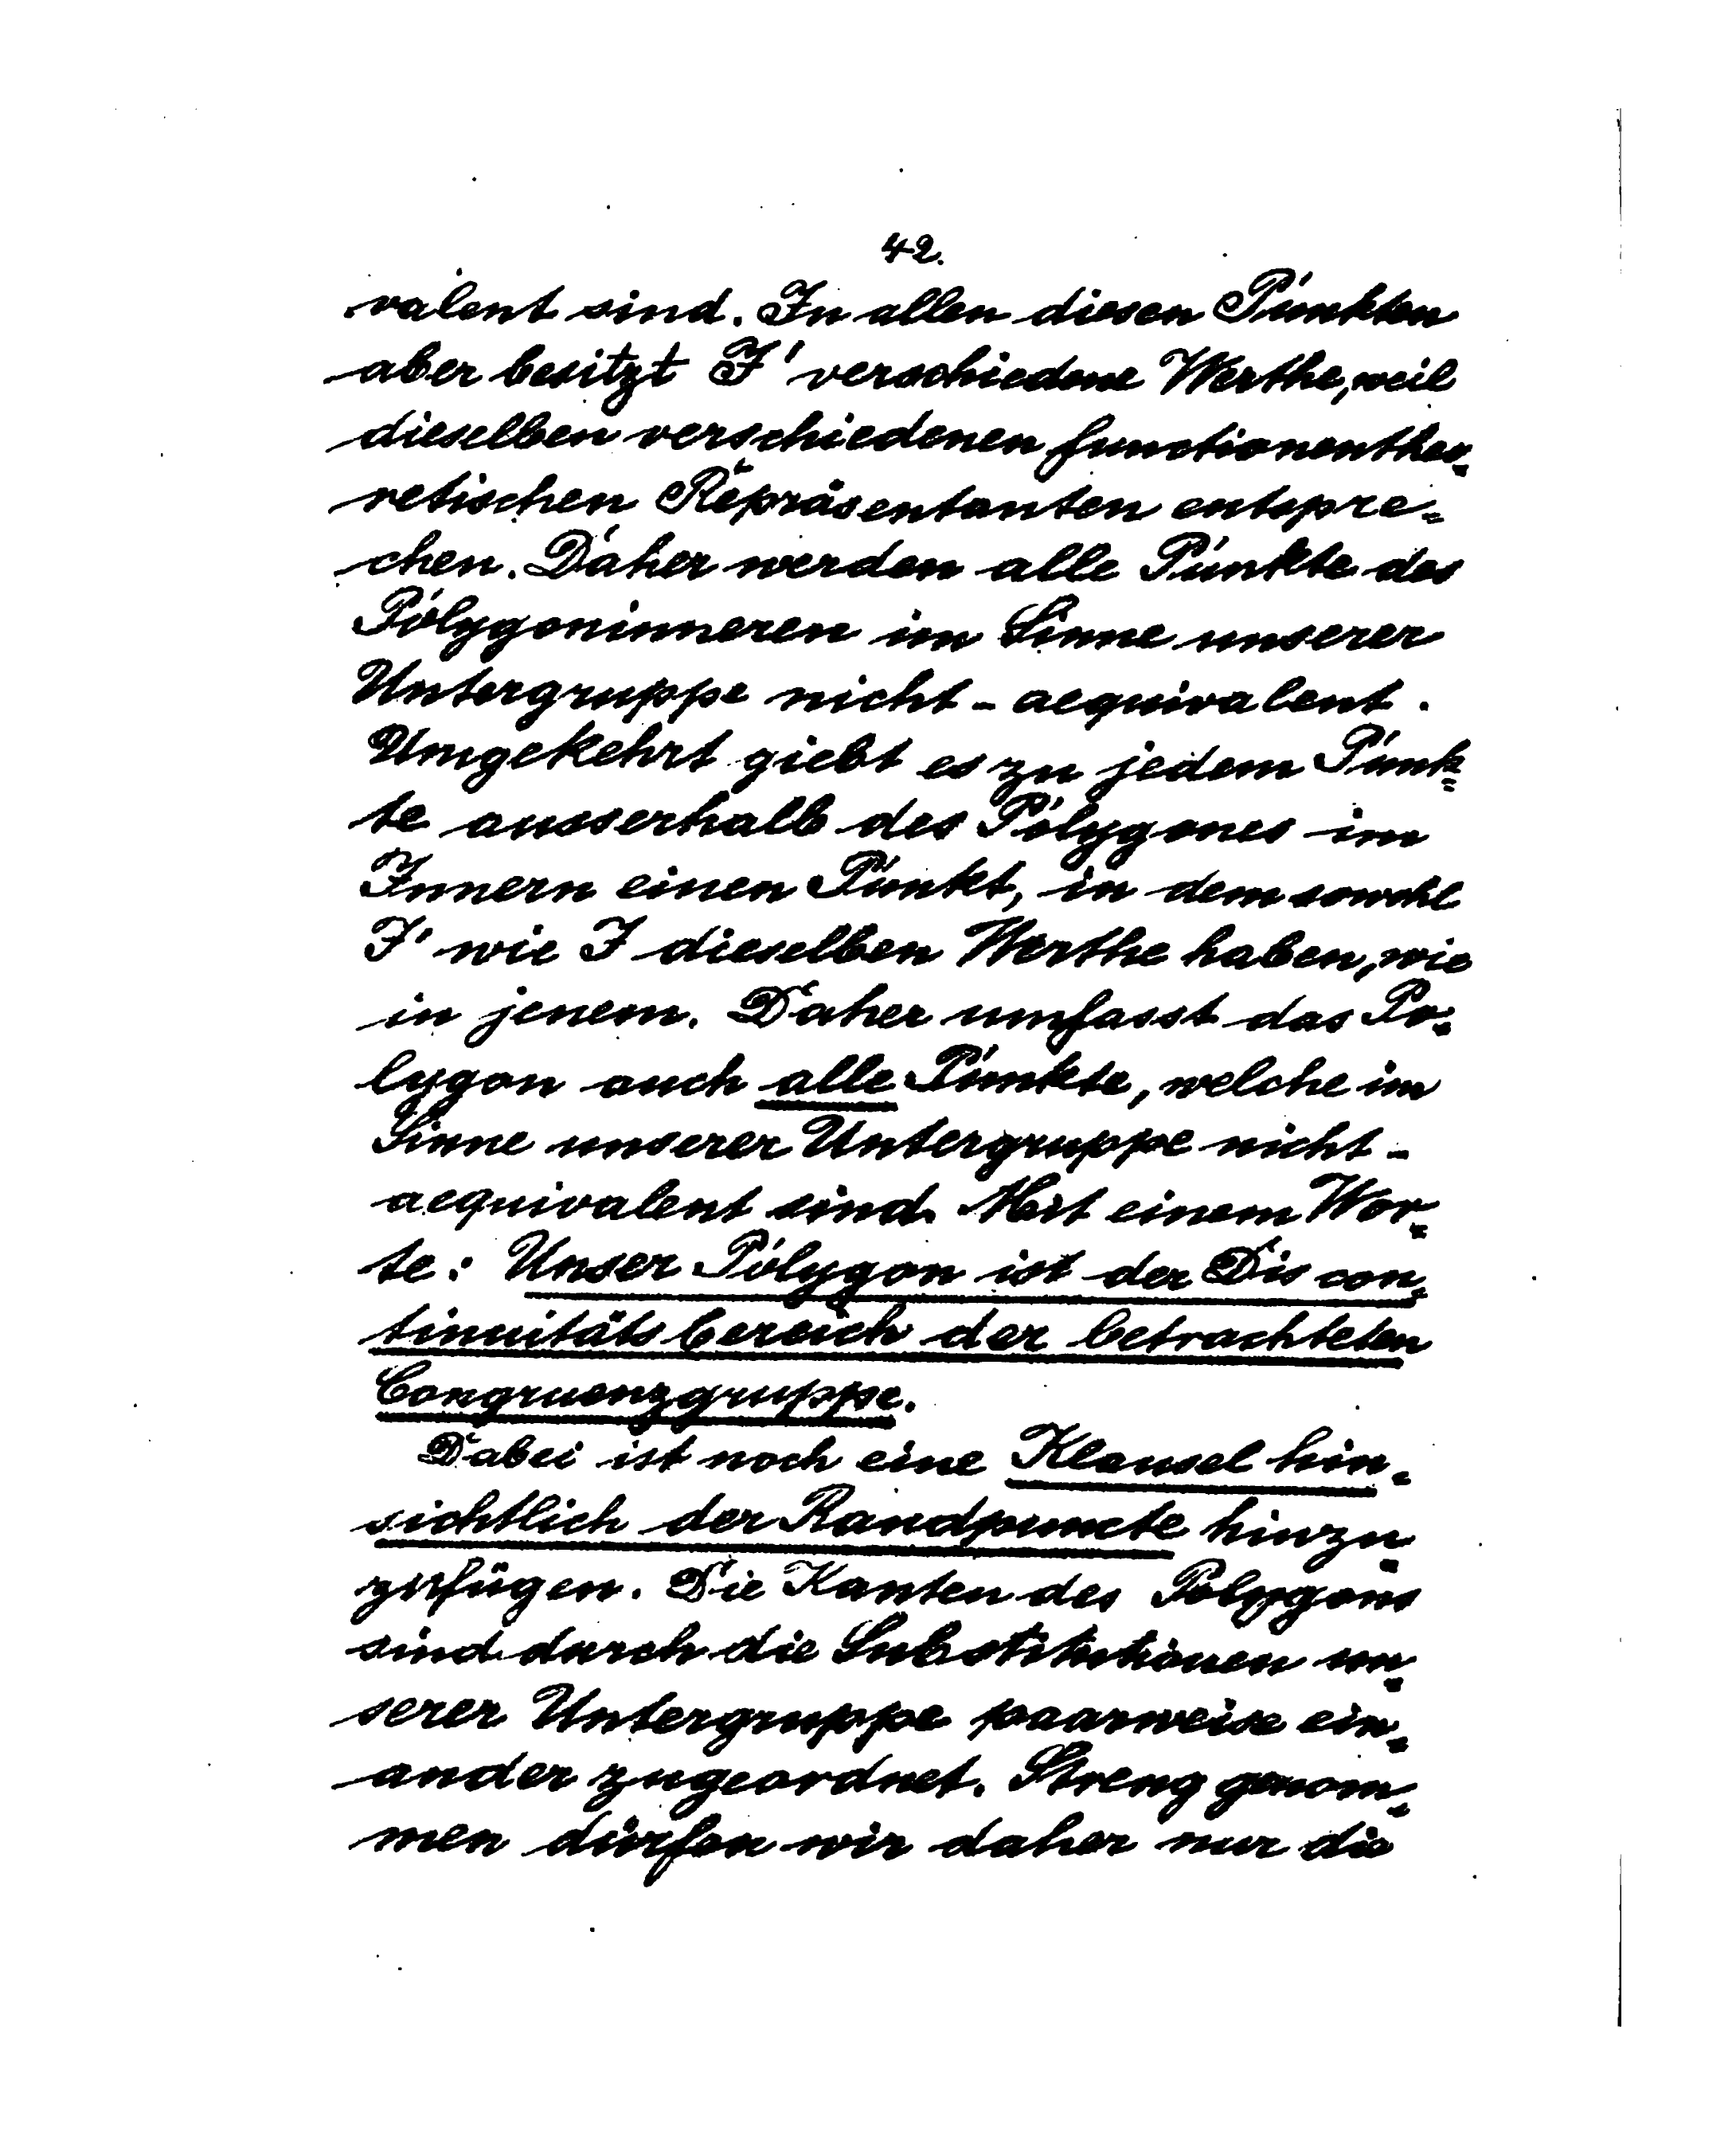 42.
valent sind. In allen diesen Punkten
aber besitzt J' verschiedene Werthe, weil
dieselben verschiedenen functionentheo-
retischen Repräsentanten entspre-
chen. Daher werden alle Punkte des
Polygoninneren im Sinne unserer
Untergruppe nicht-aequivalent.
Umgekehrt giebt es zu jedem Punk-
te ausserhalb des Polygones im
Innern einen Punkt, in dem sowohl
J' wie J dieselben Werthe haben, wie
in jenem. Daher umfasst das Po-
lygon auch alle Punkte, welche im
Sinne unserer Untergruppe nicht-
aequivalent sind. Mit einem Wor-
te: Unser Polygon ist der Discon-
tinuitätsbereich der betrachteten
Congruenzgruppe.
Dabei ist noch eine Klausel hin-
sichtlich der Randpuncte hinzu-
zufügen. Die Kanten des Polygons
sind durch die Substitutionen un-
serer Untergruppe paarweise ein-
ander zugeordnet. Streng genom-
men dürfen wir daher nur die